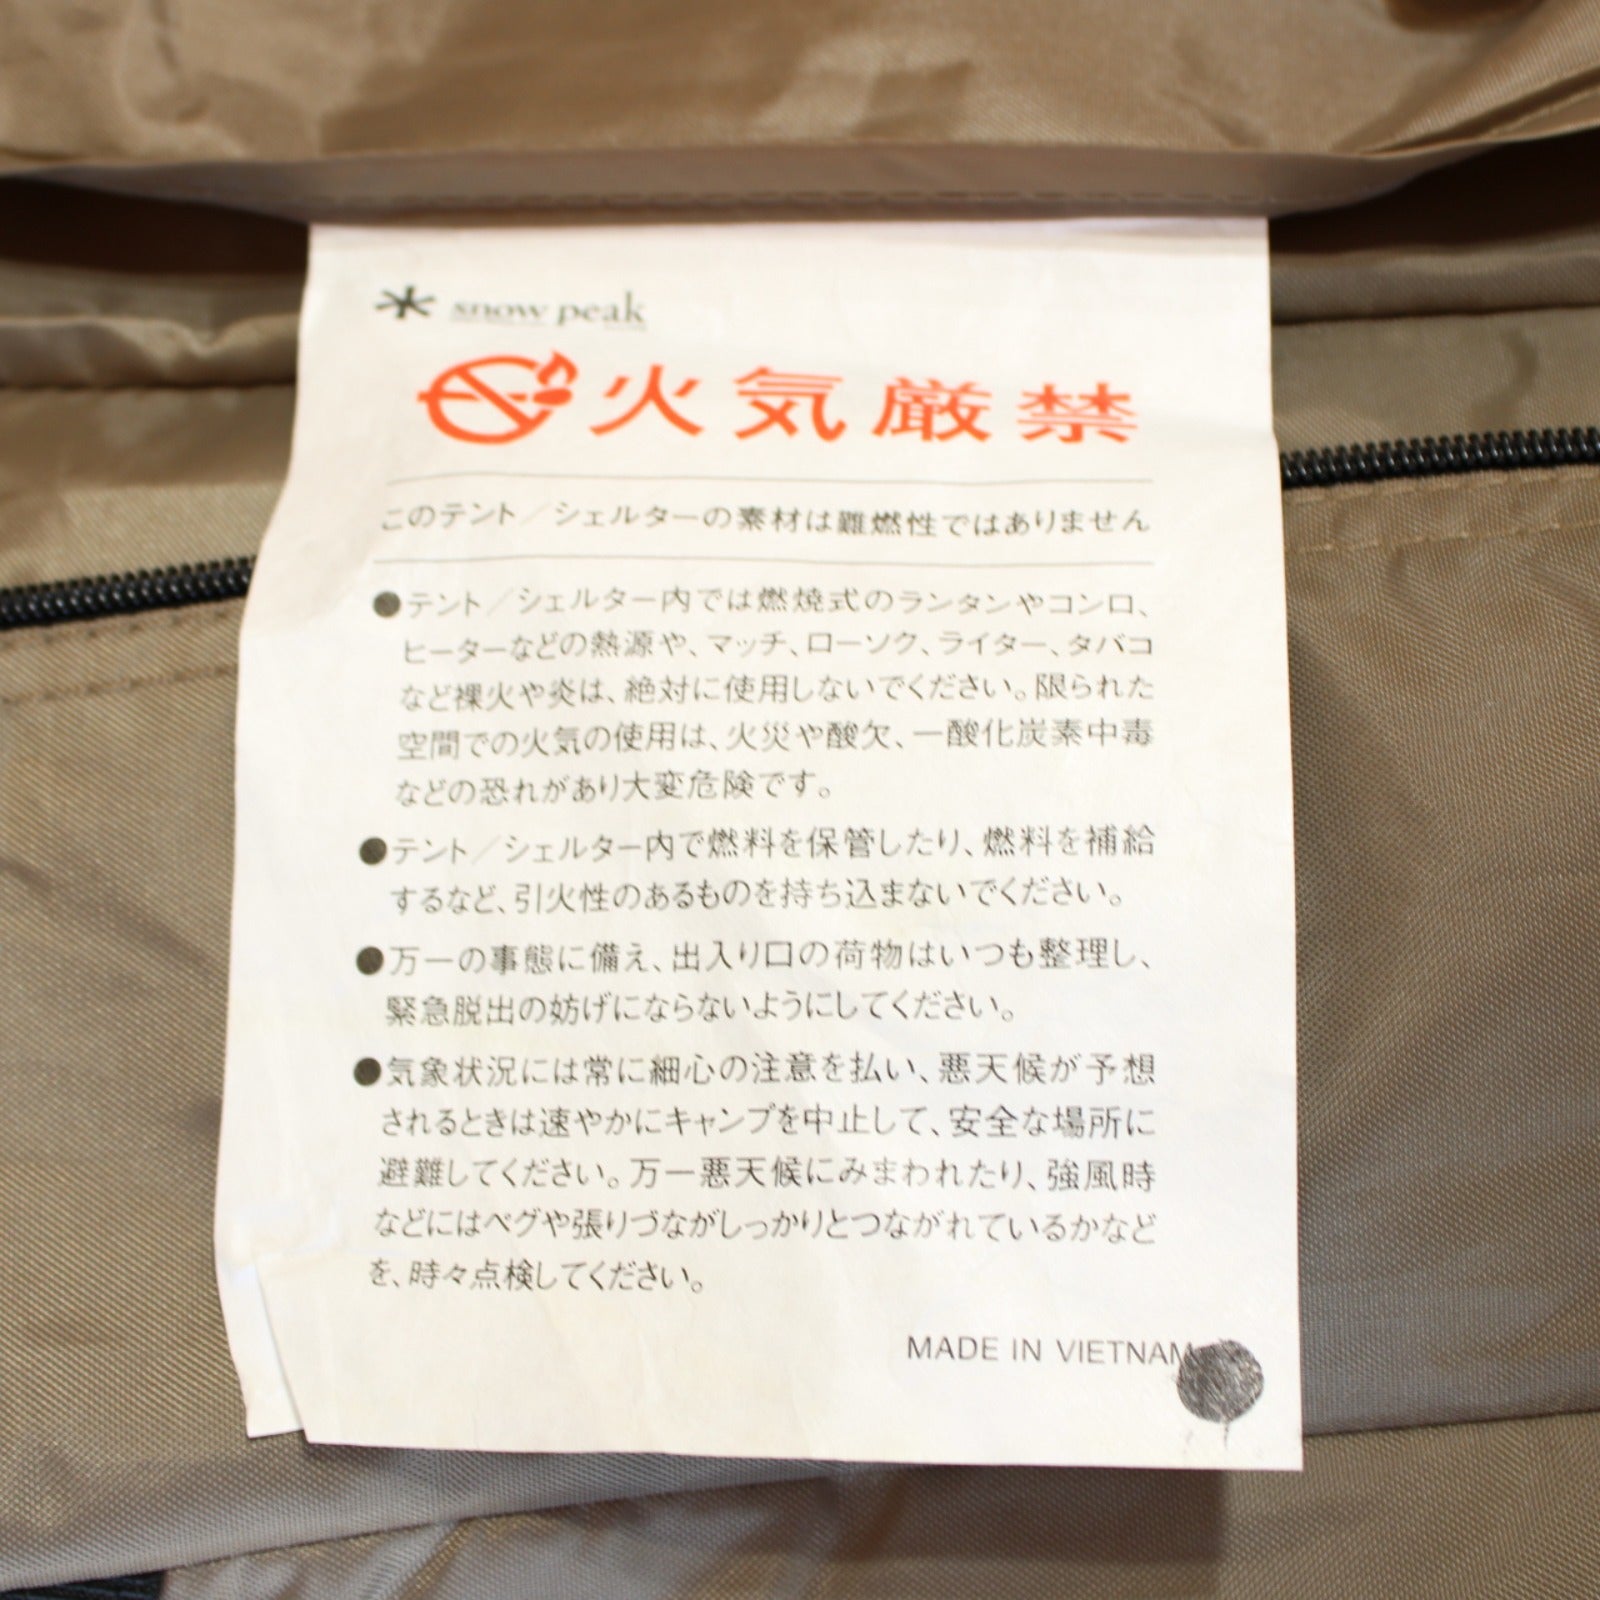 snow peak
火気厳禁
このテント／シェルターの素材は難燃性ではありません
●テント／シェルター内では燃焼式のランタンやコンロ、
ヒーターなどの熱源や、マッチ、ローソク、ライター、タバコ
など裸火や炎は、絶対に使用しないでください。限られた
空間での火気の使用は、火災や酸欠、一酸化炭素中毒
などの恐れがあり大変危険です。
●テント／シェルター内で燃料を保管したり、燃料を補給
するなど、引火性のあるものを持ち込まないでください。
●万一の事態に備え、出入り口の荷物はいつも整理し、
緊急脱出の妨げにならないようにしてください。
●気象状況には常に細心の注意を払い、悪天候が予想
されるときは速やかにキャンプを中止して、安全な場所に
避難してください。万一悪天候にみまわれたり、強風時
などにはペグや張りづながしっかりとつながれているかなど
を、時々点検してください。
MADE IN VIETNAM